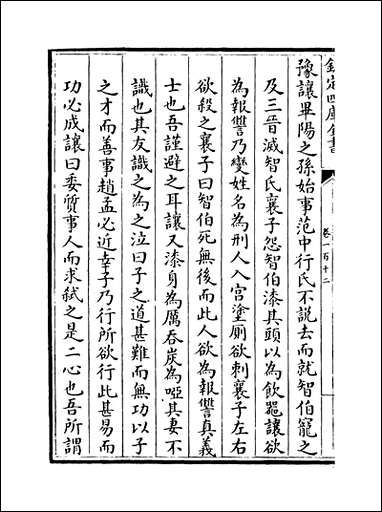 欽定四庫全書
卷一百十二
豫讓畢陽之孫始事范中行氏不說去而就智伯寵之
及三晉滅智氏襄子怨智伯漆其頭以為飲噐讓欲
為報讐乃變姓名為刑人入宫塗厠欲刺襄子左右
欲殺之襄子曰智伯死無後而此人欲為報讐真義
士也吾謹避之耳讓又漆身為厲吞炭為啞其妻不
識也其友識之為之泣曰子之道甚難而無功以子
之才而善事趙孟必近幸子乃行所欲行此甚易而
功必成讓曰委質事人而求弑之是二心也吾所謂